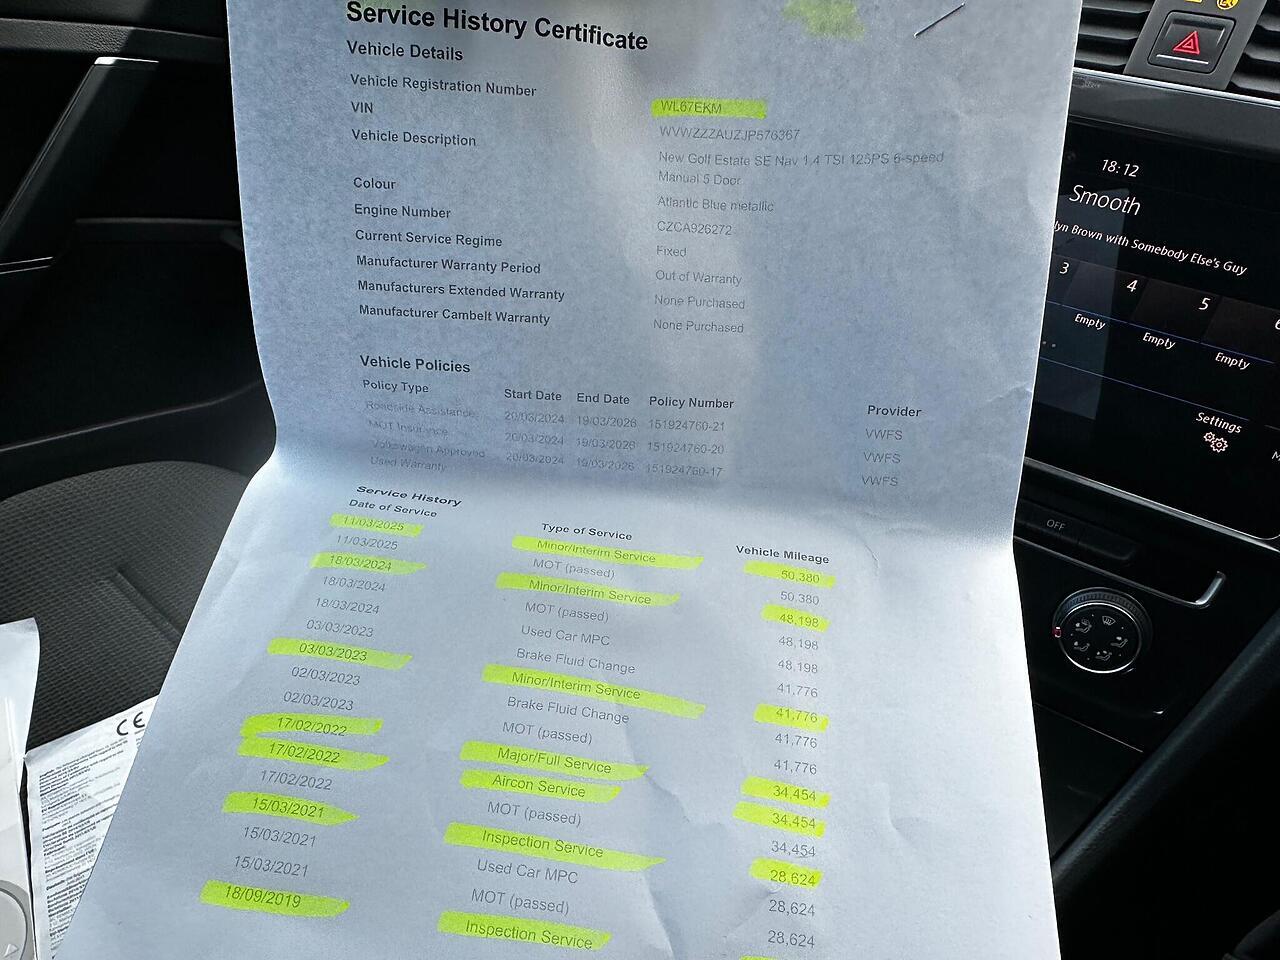 Service History Certificate
Vehicle Details
Vehicle Registration Number WL67EKM
VIN WVWZZZAUZJP576367
Vehicle Description New Golf Estate SE Nav 1.4 TSI 125PS 6-speed
Manual 5 Door
Colour Atlantic Blue metallic
Engine Number CZCA926272
Current Service Regime Fixed
Manufacturer Warranty Period Out of Warranty
Manufacturers Extended Warranty None Purchased
Manufacturer Cambelt Warranty None Purchased
Vehicle Policies
Policy Type Start Date End Date Policy Number Provider
Roadside Assistance 20/03/2024 19/03/2026 151924760-21 VWFS
MOT Insurance 20/03/2024 19/03/2026 151924760-20 VWFS
Volkswagen Approved 20/03/2024 19/03/2026 151924760-17 VWFS
Used Warranty
Service History
Date of Service Type of Service Vehicle Mileage
11/03/2025 Minor/Interim Service 50,380
11/03/2025 MOT (passed) 50,380
18/03/2024 Minor/Interim Service 48,198
18/03/2024 MOT (passed) 48,198
18/03/2024 Used Car MPC 48,198
03/03/2023 Brake Fluid Change 41,776
03/03/2023 Minor/Interim Service 41,776
02/03/2023 Brake Fluid Change 41,776
02/03/2023 MOT (passed) 41,776
17/02/2022 Major/Full Service 34,454
17/02/2022 Aircon Service 34,454
17/02/2022 MOT (passed) 34,454
15/03/2021 Inspection Service 28,624
15/03/2021 Used Car MPC 28,624
15/03/2021 MOT (passed) 28,624
18/09/2019 Inspection Service
18:12
Smooth
lyn Brown with Somebody Else's Guy
3 4 5
Empty Empty Empty
Settings
OFF
CE